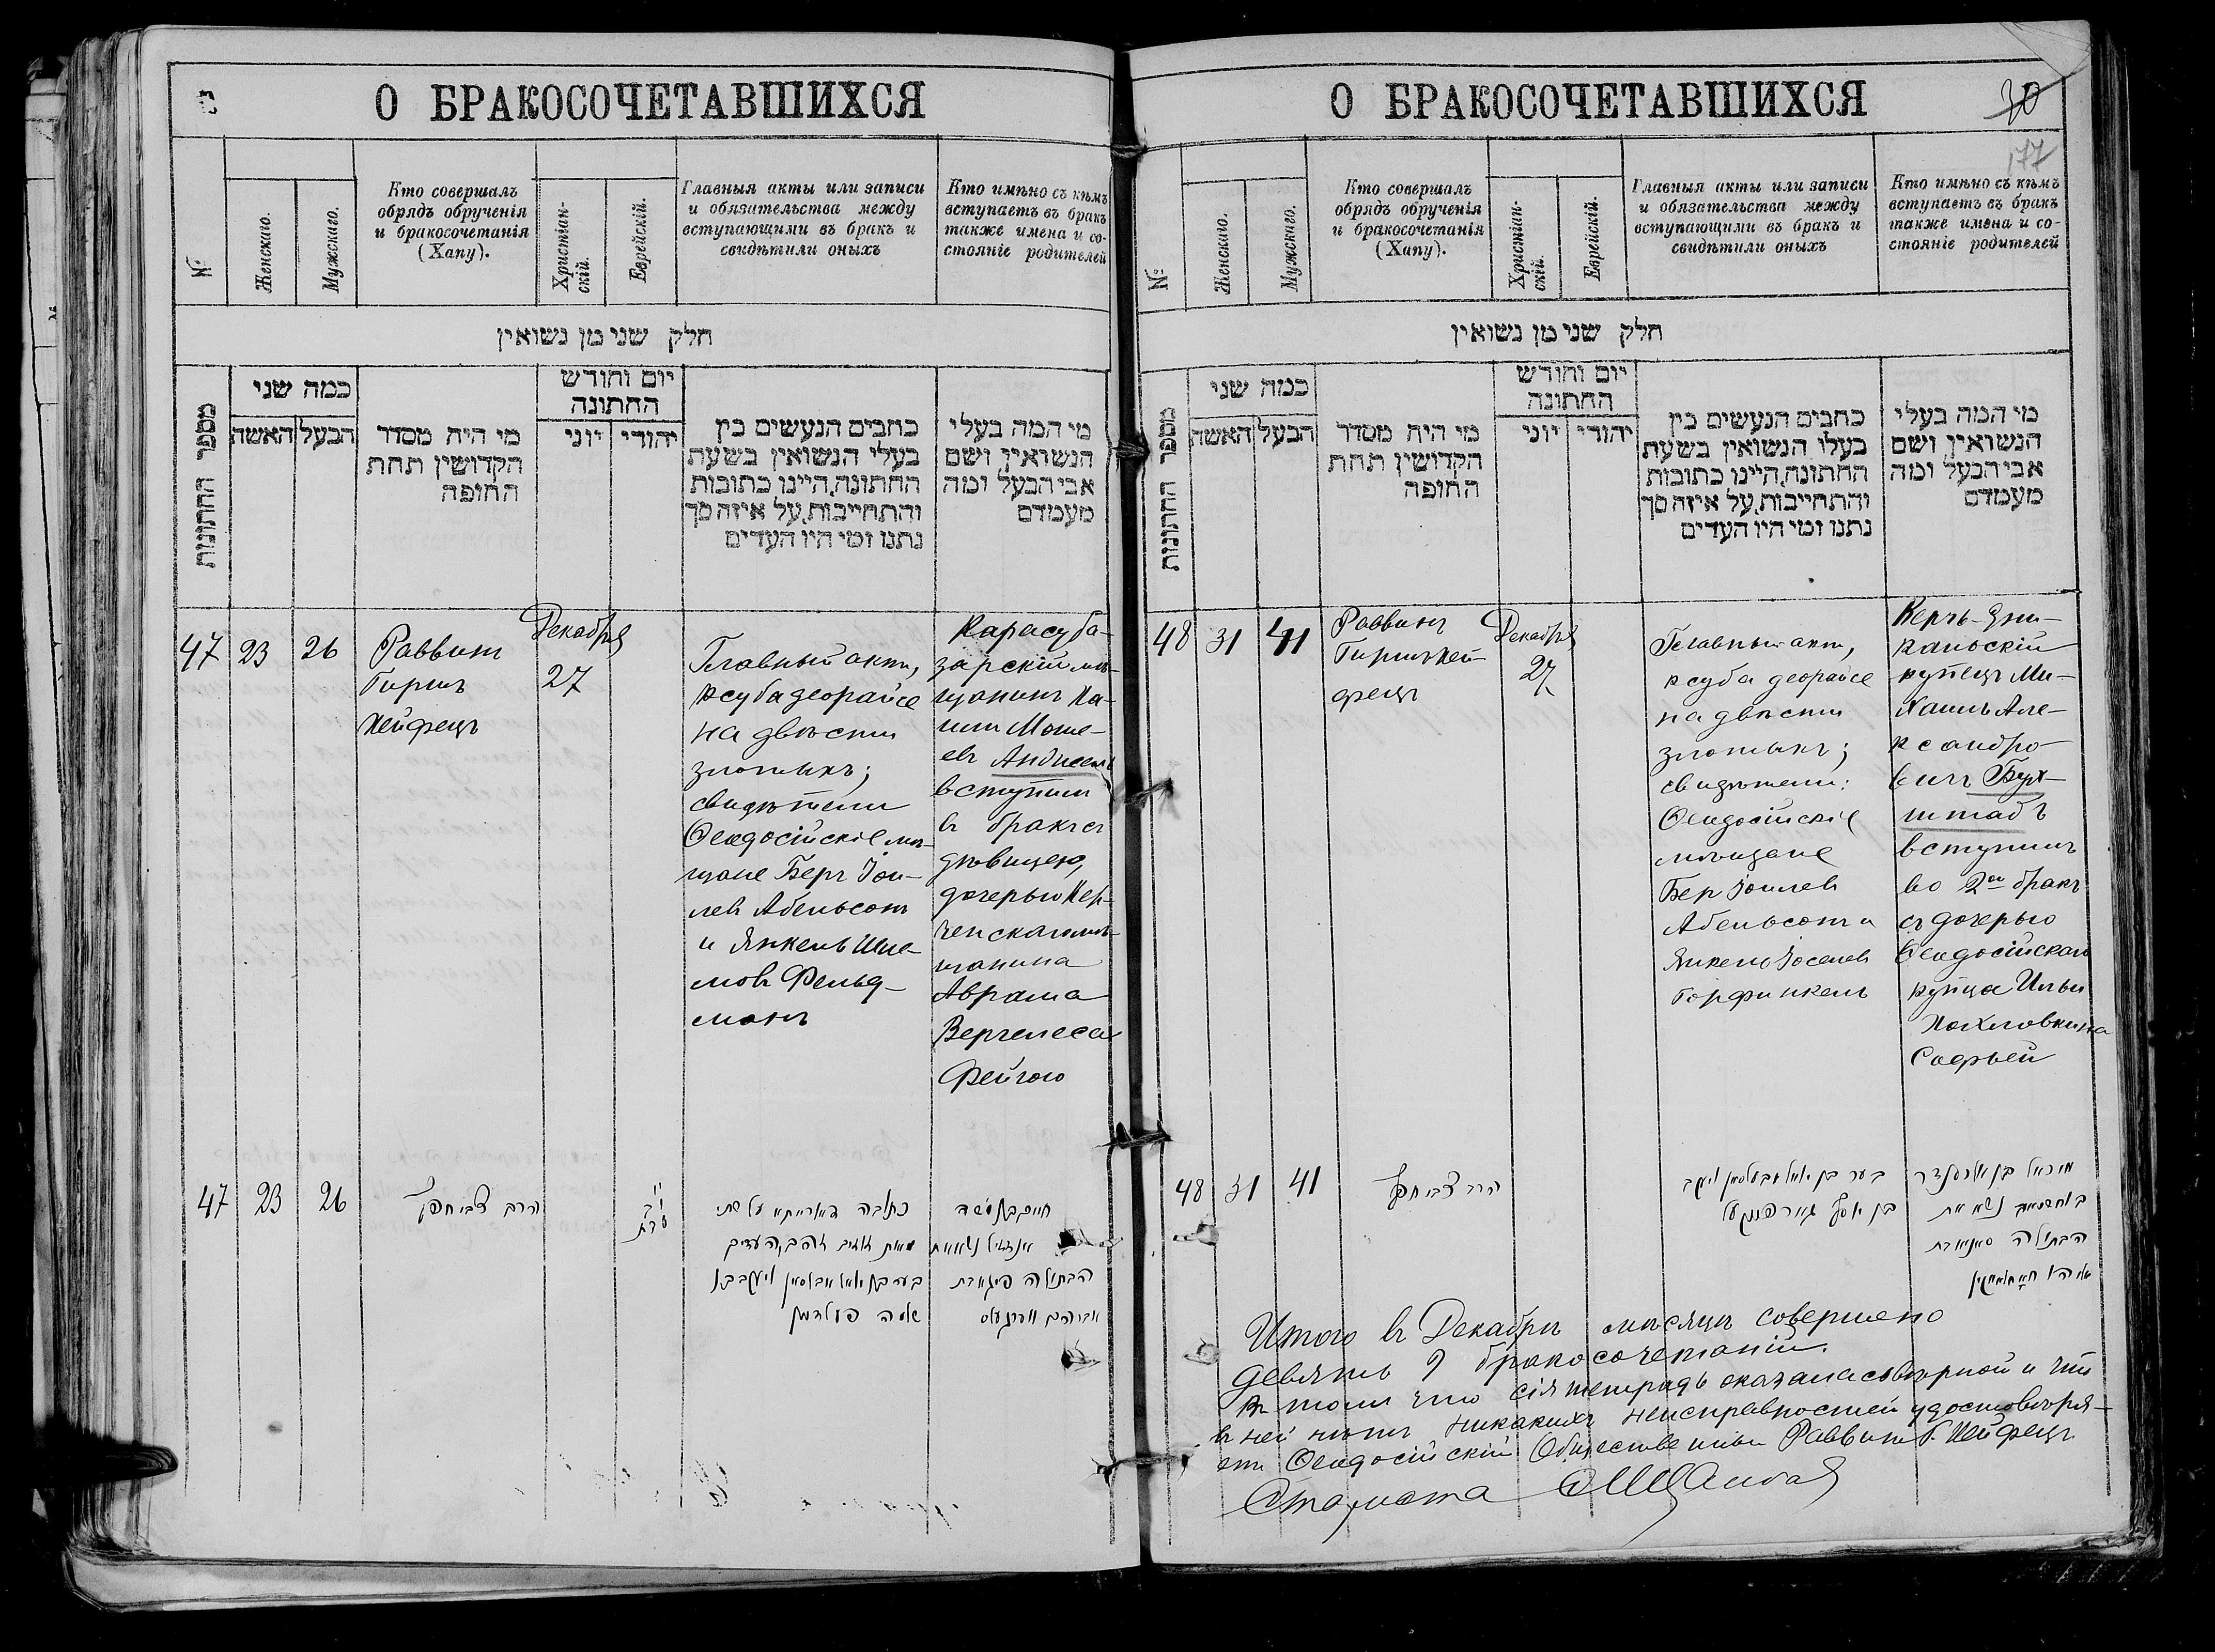 О БРАКОСОЧЕТАВШИХСЯ
№
Женскаго.
Мужскаго.
Кто совершалъ
обрядъ обрученія
и бракосочетанія
(Хапу).
Христіан-
скій.
Еврейскій.
Главныя акты или записи
и обязательства между
вступающими въ бракъ и
свидѣтили оныхъ
Кто имѣно съ кѣмъ
вступаетъ въ бракъ
также имена и со-
стояніе родителей
חלק שני מן נשואין
מספר החתונות
כמה שני
האשה
הבעל
מי היה מסדר
הקדושין תחת
החופה
יום וחודש
החתונה
יוני
יהודי
כתבים הנעשים בין
בעלי הנשואין בשעת
החתונה, היינו כתובות
והתחייבות, על איזה סך
נתנו ומי היו העדים
מי המה בעלי
הנשואין, ושם
אבי הבעל ומה
מעמדם
47
23
26
Раввинъ
Гиршъ
Хейфецъ
Декабря
27
Главный актъ,
ксуба деорайсе
на двѣсти
злотыхъ;
свидѣтели
Ѳеодосійскіе мѣ-
щане Беръ Іои-
левъ Абельсонъ
и Янкель Шле-
мовъ Фельд-
манъ
Карасуба-
зарскій мѣ-
щанинъ Ха-
имъ Моше-
евъ
вступилъ
въ бракъ съ
дѣвицею,
дочерью Кер-
ченскаго мѣ-
щанина
Абрама
Вергелеса
Фейгою
47
23
26
הרב צבי חפץ
כתובה דאורייתא על שתי
מאות זהובים העדים
בער בן יואל אבעלסאן ויעקב בן
שלמה פעלדמאן
חיים בן משה
נשא את
הבתולה פייגא בת
אברהם ווערגעלעס
О БРАКОСОЧЕТАВШИХСЯ
20
177
№
Женскаго.
Мужскаго.
Кто совершалъ
обрядъ обрученія
и бракосочетанія
(Хапу).
Христіан-
скій.
Еврейскій.
Главныя акты или записи
и обязательства между
вступающими въ бракъ и
свидѣтили оныхъ
Кто имѣно съ кѣмъ
вступаетъ въ бракъ
также имена и со-
стояніе родителей
חלק שני מן נשואין
מספר החתונות
כמה שני
האשה
הבעל
מי היה מסדר
הקדושין תחת
החופה
יום וחודש
החתונה
יוני
יהודי
כתבים הנעשים בין
בעלי הנשואין בשעת
החתונה, היינו כתובות
והתחייבות, על איזה סך
נתנו ומי היו העדים
מי המה בעלי
הנשואין, ושם
אבי הבעל ומה
מעמדם
48
31
41
Раввинъ
Гиршъ Хей-
фецъ
Декабря
27
Главный актъ,
ксуба деорайсе
на двѣсти
злотыхъ;
свидѣтели:
Ѳеодосійскіе
мѣщане
Беръ Іоилевъ
Абельсонъ и
Янкель Іоселевъ
Горфинкель
Керчь-Ени-
кальскій
купецъ Ми-
хаилъ Але-
ксандро-
вичъ Бух-
штабъ
вступилъ
во 2ой бракъ
съ дочерью
Ѳеодосійскаго
купца Ильи
Софьей
48
31
41
הרב צבי חפץ
בער בן יואל אבעלסאן ויעקב
בן יוסף גורפינקעל
נשא את
הבתולה
אליהו
Итого въ Декабрѣ мѣсяцѣ совершено
девять 9 бракосочетаній.
Въ томъ что сія тетрадь оказалась вѣрной и что
въ ней нѣтъ никакихъ неисправностей удостовѣря-
етъ Ѳеодосійскій Общественный Раввинъ Г. Хейфецъ
Староста